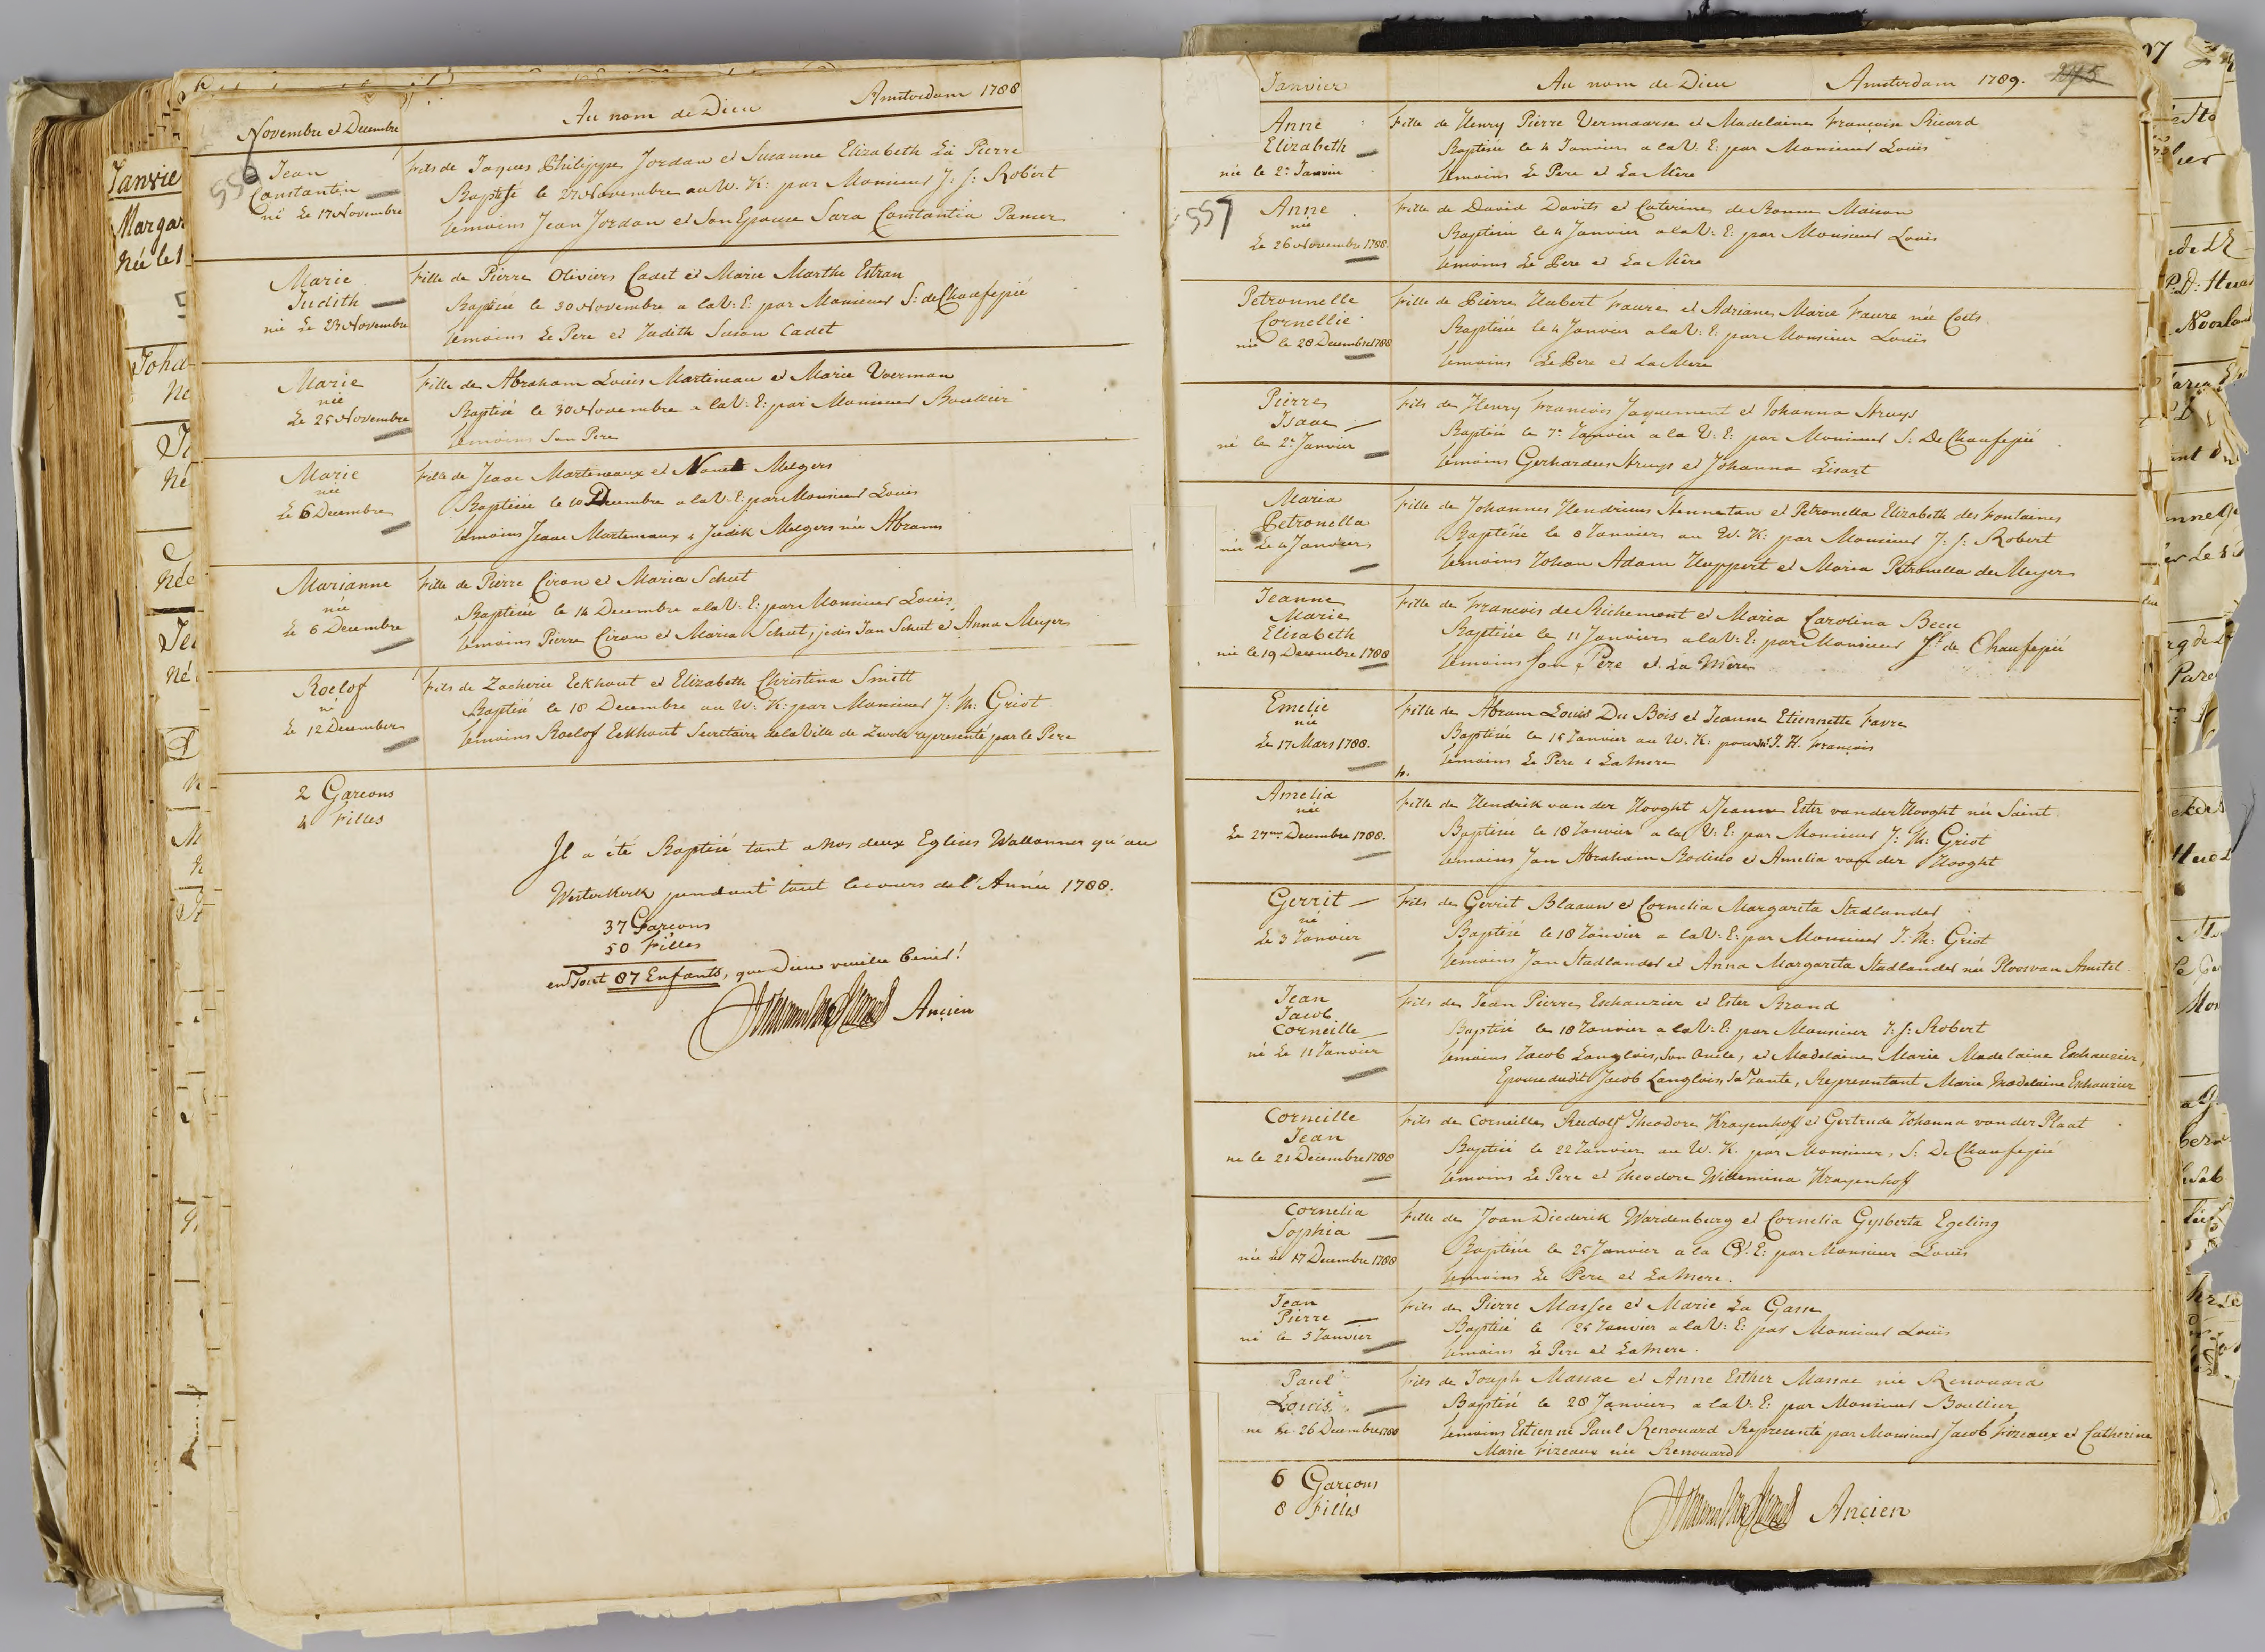 Novembre et Decembre
Au nom de Dieu
Amsterdam 1788
556
Jean
Constantin
né Le 17 Novembre
Fils de Jaques Philippe Jordan et Susanne Elizabeth La Pierre
Baptisé le 27 Novembre au W. K: par Monsieur J: J: Robert
temoins Jean Jordan et Son Epouse Sara Constantia Panser
Marie
Judith
née Le 23 Novembre
Fille de Pierre Oliviers Cadet et Marie Marthe Estran
Baptisée le 30 Novembre a la V: E: par Monsieur S: de Chaufepié
temoins Le Pere et Judith Suson Cadet
Marie
née
Le 25 Novembre
Fille de Abraham Louis Martineau et Marie Voerman
Baptisé le 30 Novembre a la V: E: par Monsieur Boullier
temoins Son Pere
Marie
née
Le 6 Decembre
Fille de Isaac Marteneaux et Melgers
Baptisée le 10 Decembre a la V: E: par Monsieur Louis
temoins Isaac Marteneaux & Judik Melgers née Abrams
Marianne
née
Le 6 Decembre
Fille de Pierre Ciron et Maria Schut
Baptisée le 14 Decembre a la V: E: par Monsieur Louis
temoins Pierre Ciron et Maria Schut, jedis Jan Schut et Anna Meyers
Roelof
né
Le 12 December
Fils de Zacherie Eekhout et Elizabeth Christina Smitt
Baptisé le 18 Decembre au W: K: par Monsieur J: M: Griot
temoins Roelof Eekhout Secretaire de la Ville de Zwole representé par le Pere
2 Garcons
4 Filles
Il a été Baptisé tant a nos deux Eglises Wallonnes qu'au
Westerkerk pendant tout le cours de l'Année 1788.
37 Garcons
50 Filles
en Tout 87 Enfants, que Dieu veuille benir!
Ancien
Janvier
Au nom de Dieu
Amsterdam 1789.
Anne
Elizabeth
née le 2e Janvier
Fille de Henry Pierre Vermaarse et Madelaine Françoise Ricard
Baptisée le 4 Janvier a la V: E: par Monsieur Louis
temoins Le Pere et La Mére
557
Anne
née
Le 26 Novembre 1788.
Fille de David Davits et Caterine de Bonne Maison
Baptisée le 4 Janvier a la V: E: par Monsieur Louis
temoins Le Pere et La Mére
Petronnelle
Cornellie
née le 28 Decembre 1788
Fille de Pierre Hubert Faure et Adriane Marie Faure née Coets
Baptisée le 4 Janvier a la V: E: par Monsieur Louis
temoins Le Pere et La Mere
Pierre
Isaac
né le 2e Janvier
Fils de Henry Francois Jaquement et Johanna Struys
Baptisé le 7e Janvier a la V: E: par Monsieur S: De Chaufepié
temoins Gerhardus Struys et Johanna Lisart
Maria
Petronella
née Le 4 Janvier
Fille de Johannes Hendricus Henneten et Petronella Elizabeth des Fontaines
Baptisée le 8 Janvier au W. K: par Monsieur J: J: Robert
temoins Johan Adam Huppert et Maria Petronella de Meyer
Jeanne
Marie
Elisabeth
née le 19 Decembre 1788
Fille de Francois de Richemont et Maria Carolina Becu
Baptisée le 11 Janvier a la V: E: par Monsieur S. de Chaufepié
temoins Son Pere et La Mére
Emelie
née
Le 17 Mars 1788.
Fille de Abram Louis Du Bois et Jeanne Etiennette Favre
Baptisée le 15 Janvier au W. K: par Mr J. H. François
temoins Le Pere & La Mere
Amelia
née
Le 27me Decembre 1788.
Fille de Hendrik van der Hooght & Jeanne Ester van der Hooght née Saint
Baptisée le 18 Janvier a la V: E: par Monsieur J: M: Griot
temoins Jan Abraham Rodius et Amelia van der Hooght
Gerrit
né
Le 3 Janvier
Fils de Gerrit Blaauw et Cornelia Margareta Stadlander
Baptisé le 18 Janvier a la V: E: par Monsieur J: M: Griot
temoins Jan Stadlander et Anna Margareta Stadlander née Ploos van Amstel
Jean
Jacob
Corneille
né Le 11 Janvier
Fils de Jean Pierre Eschauzier et Ester Brand
Baptisé le 18 Janvier a la V: E: par Monsieur J: J: Robert
temoins Jacob Langlois, Son Oncle, et Madelaine Marie Madelaine Eschauzier,
Epouse dudit Jacob Langlois, Sa Tante, Representant Marie Madelaine Eschauzier
Corneille
Jean
ne le 21 Decembre 1788
Fils de Corneille Rudolf Theodore Krayenhoff et Gertrude Johanna van der Plaat
Baptisé le 22 Janvier au W. K. par Monsieur, S: De Chaufepié
temoins Le Pere et Theodore Willemina Krayenhoff
Cornelia
Sophia
née le 17 Decembre 1788
Fille de Joan Diederik Wardenburg et Cornelia Gysberta Egeling
Baptisée le 25 Janvier a la V: E: par Monsieur Louis
temoins Le Pere et La Mere.
Jean
Pierre
né le 3 Janvier
Fils de Pierre Massee et Marie La Gasse
Baptisé le 25 Janvier a la V: E: par Monsieur Louis
temoins Le Pere et La Mere.
Paul
Louis
ne Le 26 Decembre 1788
Fils de Joseph Massac et Anne Esther Massac née Renouard
Baptisé le 28 Janvier a la V: E: par Monsieur Boullier
temoins Estienne Paul Renouard Representé par Monsieur Jacob Fizeaux et Catherine
Marie Fizeaux née Renouard
6 Garcons
8 Filles
Ancien